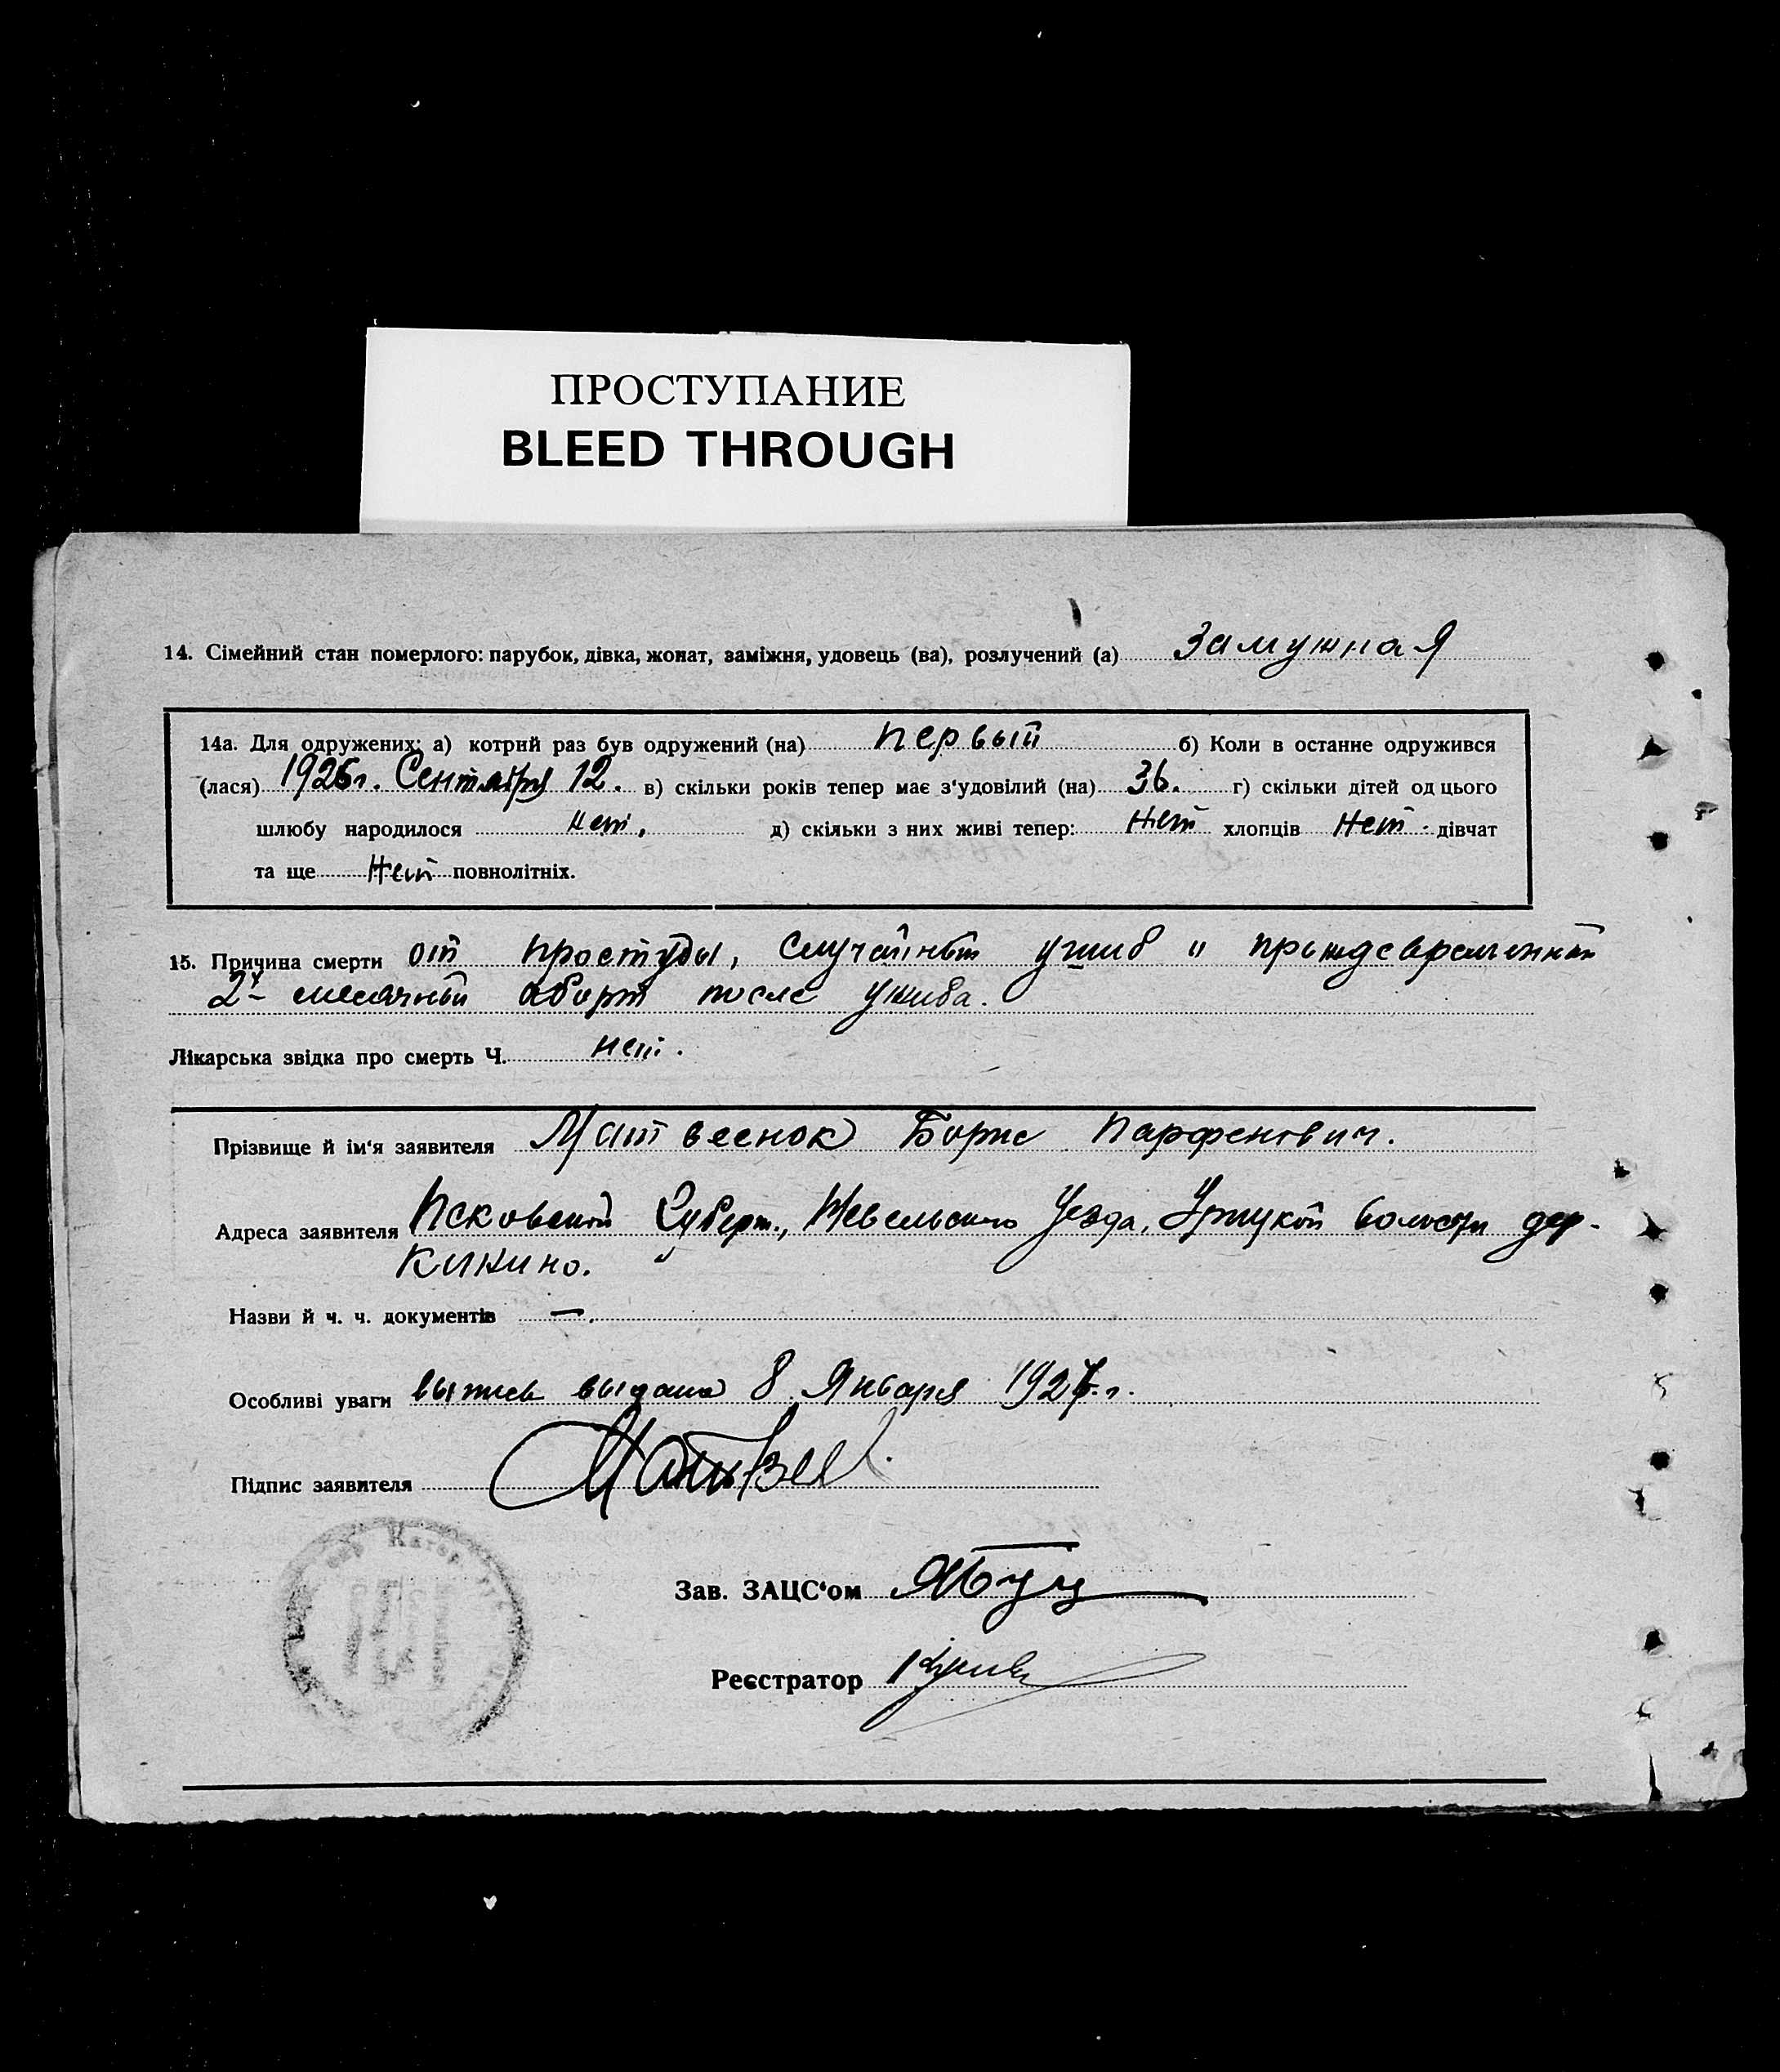 ПРОСТУПАНИЕ
BLEED THROUGH
14. Сімейний стан померлого: парубок, дівка, жонат, заміжня, удовець (ва), розлучений (а) Замужная
14а. Для одружених: а) котрий раз був одружений (на) первый б) Коли в останнє одружився
(лася) 1926 г. Сентября 12. в) скільки років тепер має з'удовілий (на) 36. г) скільки дітей од цього
шлюбу народилося нет. д) скільки з них живі тепер: нет хлопців нет. дівчат
та ще нет повнолітніх.
15. Причина смерти от простуды, случайный ушиб и
2х месячный аборт после ушиба.
Лікарська звідка про смерть Ч. нет.
Прізвище й ім'я заявителя Матвеенок Борис Парфенович.
Адреса заявителя Псковской Губерн., Невельского Уезда, волости дер.
Кинино.
Назви й ч. ч. документів —.
Особливі уваги выпись выдана 8 Января 1927 г.
Підпис заявителя
Зав. ЗАЦС'ом
Реєстратор